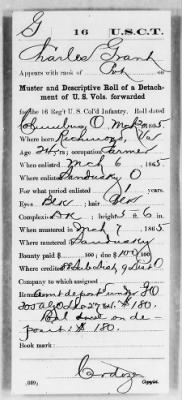 G | 16 | U.S.C.T.
Charles Grant
Appears with rank of Pvt. on
Muster and Descriptive Roll of a Detachment of U. S. Vols. forwarded
for the 16 Reg't U. S. Col'd Infantry. Roll dated
Columbus O. Mch 20, 1865.
Where born Richmond, Va
Age 24 y'rs; occupation Farmer
When enlisted Mch 6, 1865
Where enlisted Sandusky O
For what period enlisted 1 years.
Eyes Blk; hair Blk
Complexion Dk; height 5 ft. 6 in.
When mustered in Mch 7, 1865
Where mustered in Sandusky
Bounty paid $ 100; due $ 100
Where credited 9 Dist O
Company to which assigned
Remarks: Amt deposit under G O
305 A G O Dec 27 '64. $180.
Bal due on deposit: $180.
Book mark:
(339) Copyist.